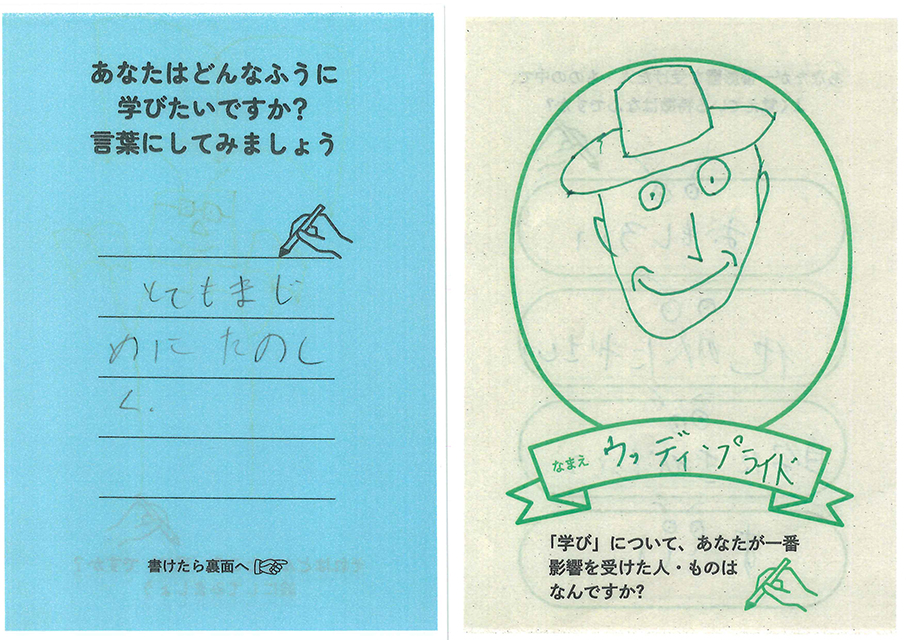 あなたはどんなふうに
学びたいですか?
言葉にしてみましょう
とてもまじ
めに たのし
く.
書けたら裏面へ
なまえ ウッディ・プライド
「学び」について、あなたが一番
影響を受けた人・ものは
なんですか?